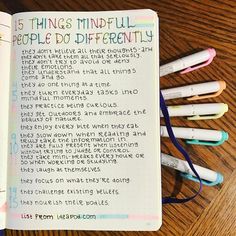 15 THINGS MINDFUL
PEOPLE DO DIFFERENTLY
they don't believe all their thoughts - and
they don't take them all that seriously.
they don't try to avoid or deny
their emotions.
they understand that all things
come and go.
they do one thing at a time
they turn everyday tasks into
mindful moments.
they practice being curious.
they get outdoors and embrace the
beauty of nature.
they enjoy every bite when they eat.
they slow down when reading and
truly take the information in.
they are fully present when listening
without trying to judge or control
they take mini-breaks every hour or
so when working or studying.
they laugh at themselves.
they focus on what they're doing.
they challenge existing beliefs.
they nourish their bodies.
LIST FROM ideapod.com